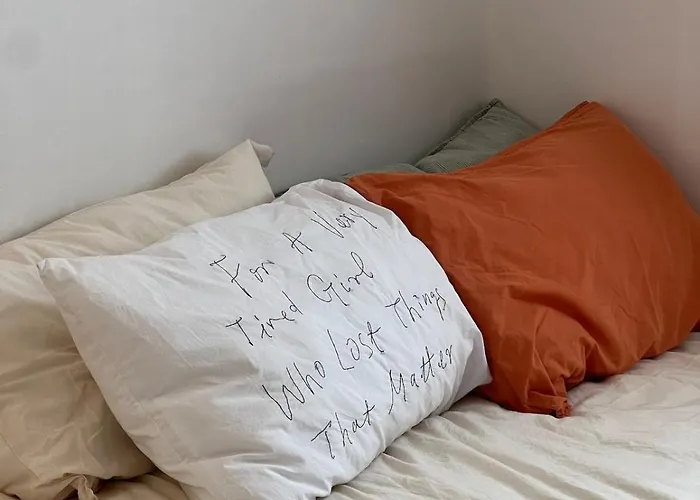 For A Very
Tired Girl
Who Lost Things
That Matter